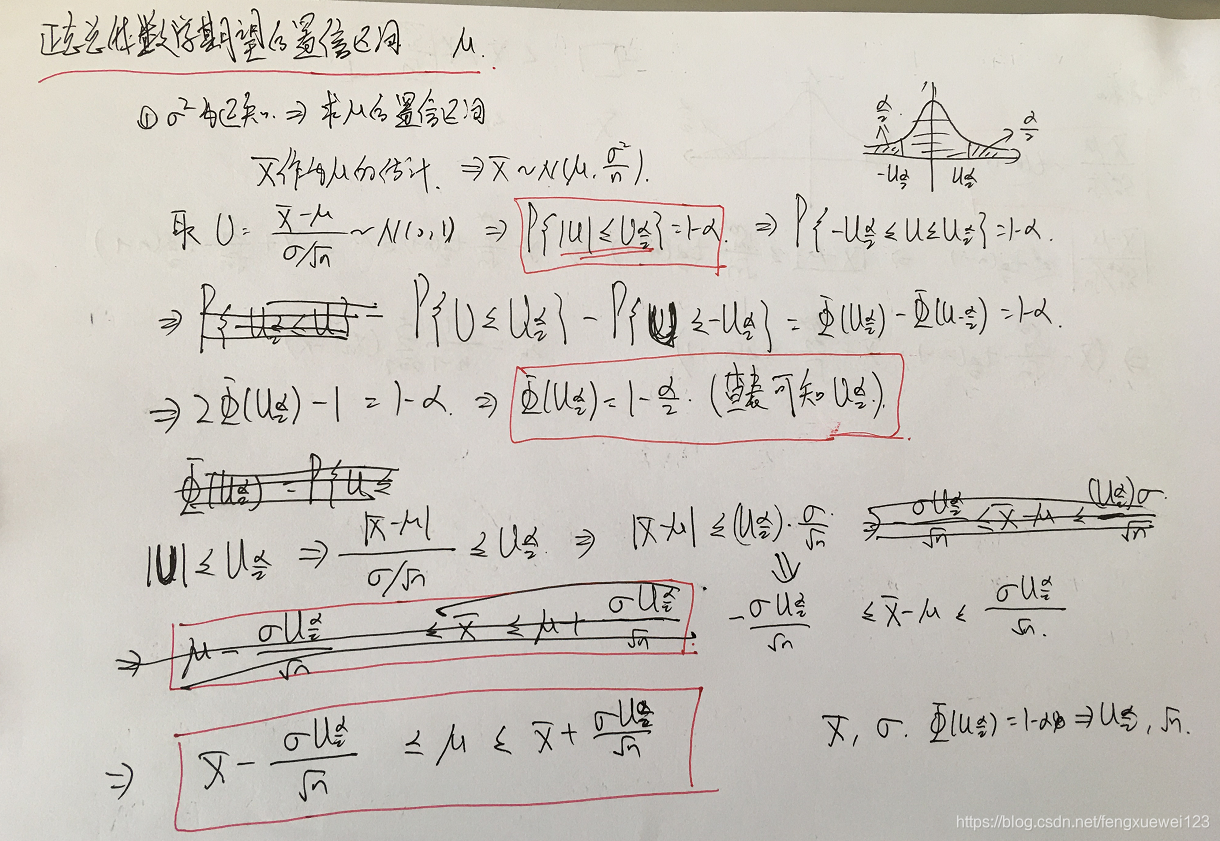 正态总体数学期望的置信区间 μ.
① σ² 为已知. ⇒ 求μ的置信区间
α/2 α/2
-U_{α/2} U_{α/2}
X̄作为μ的估计. ⇒ X̄ ~ N(μ, σ²/n).
取 U = (X̄-μ)/(σ/√n) ~ N(0,1) ⇒ P{|U| ≤ U_{α/2}} = 1-α. ⇒ P{-U_{α/2} ≤ U ≤ U_{α/2}} = 1-α.
⇒ P{U ≤ U_{α/2}} - P{U ≤ -U_{α/2}} = Φ(U_{α/2}) - Φ(U_{-α/2}) = 1-α.
⇒ 2Φ(U_{α/2}) - 1 = 1-α. ⇒ Φ(U_{α/2}) = 1 - α/2. (查表可知 U_{α/2}).
Φ(U_{α/2}) = P{U ≤
|U| ≤ U_{α/2} ⇒ |X̄-μ|/(σ/√n) ≤ U_{α/2}. ⇒ |X̄-μ| ≤ (U_{α/2})·σ/√n ⇒ σU_{α/2}/√n ≤ X̄-μ ≤ (U_{α/2})σ/√n
⇓
-σU_{α/2}/√n ≤ X̄-μ ≤ σU_{α/2}/√n.
⇒ μ - σU_{α/2}/√n ≤ X̄ ≤ μ + σU_{α/2}/√n
⇒ X̄ - σU_{α/2}/√n ≤ μ ≤ X̄ + σU_{α/2}/√n
X̄, σ. Φ(U_{α/2}) = 1-α ⇒ U_{α/2}, √n.
https://blog.csdn.net/fengxuewei123